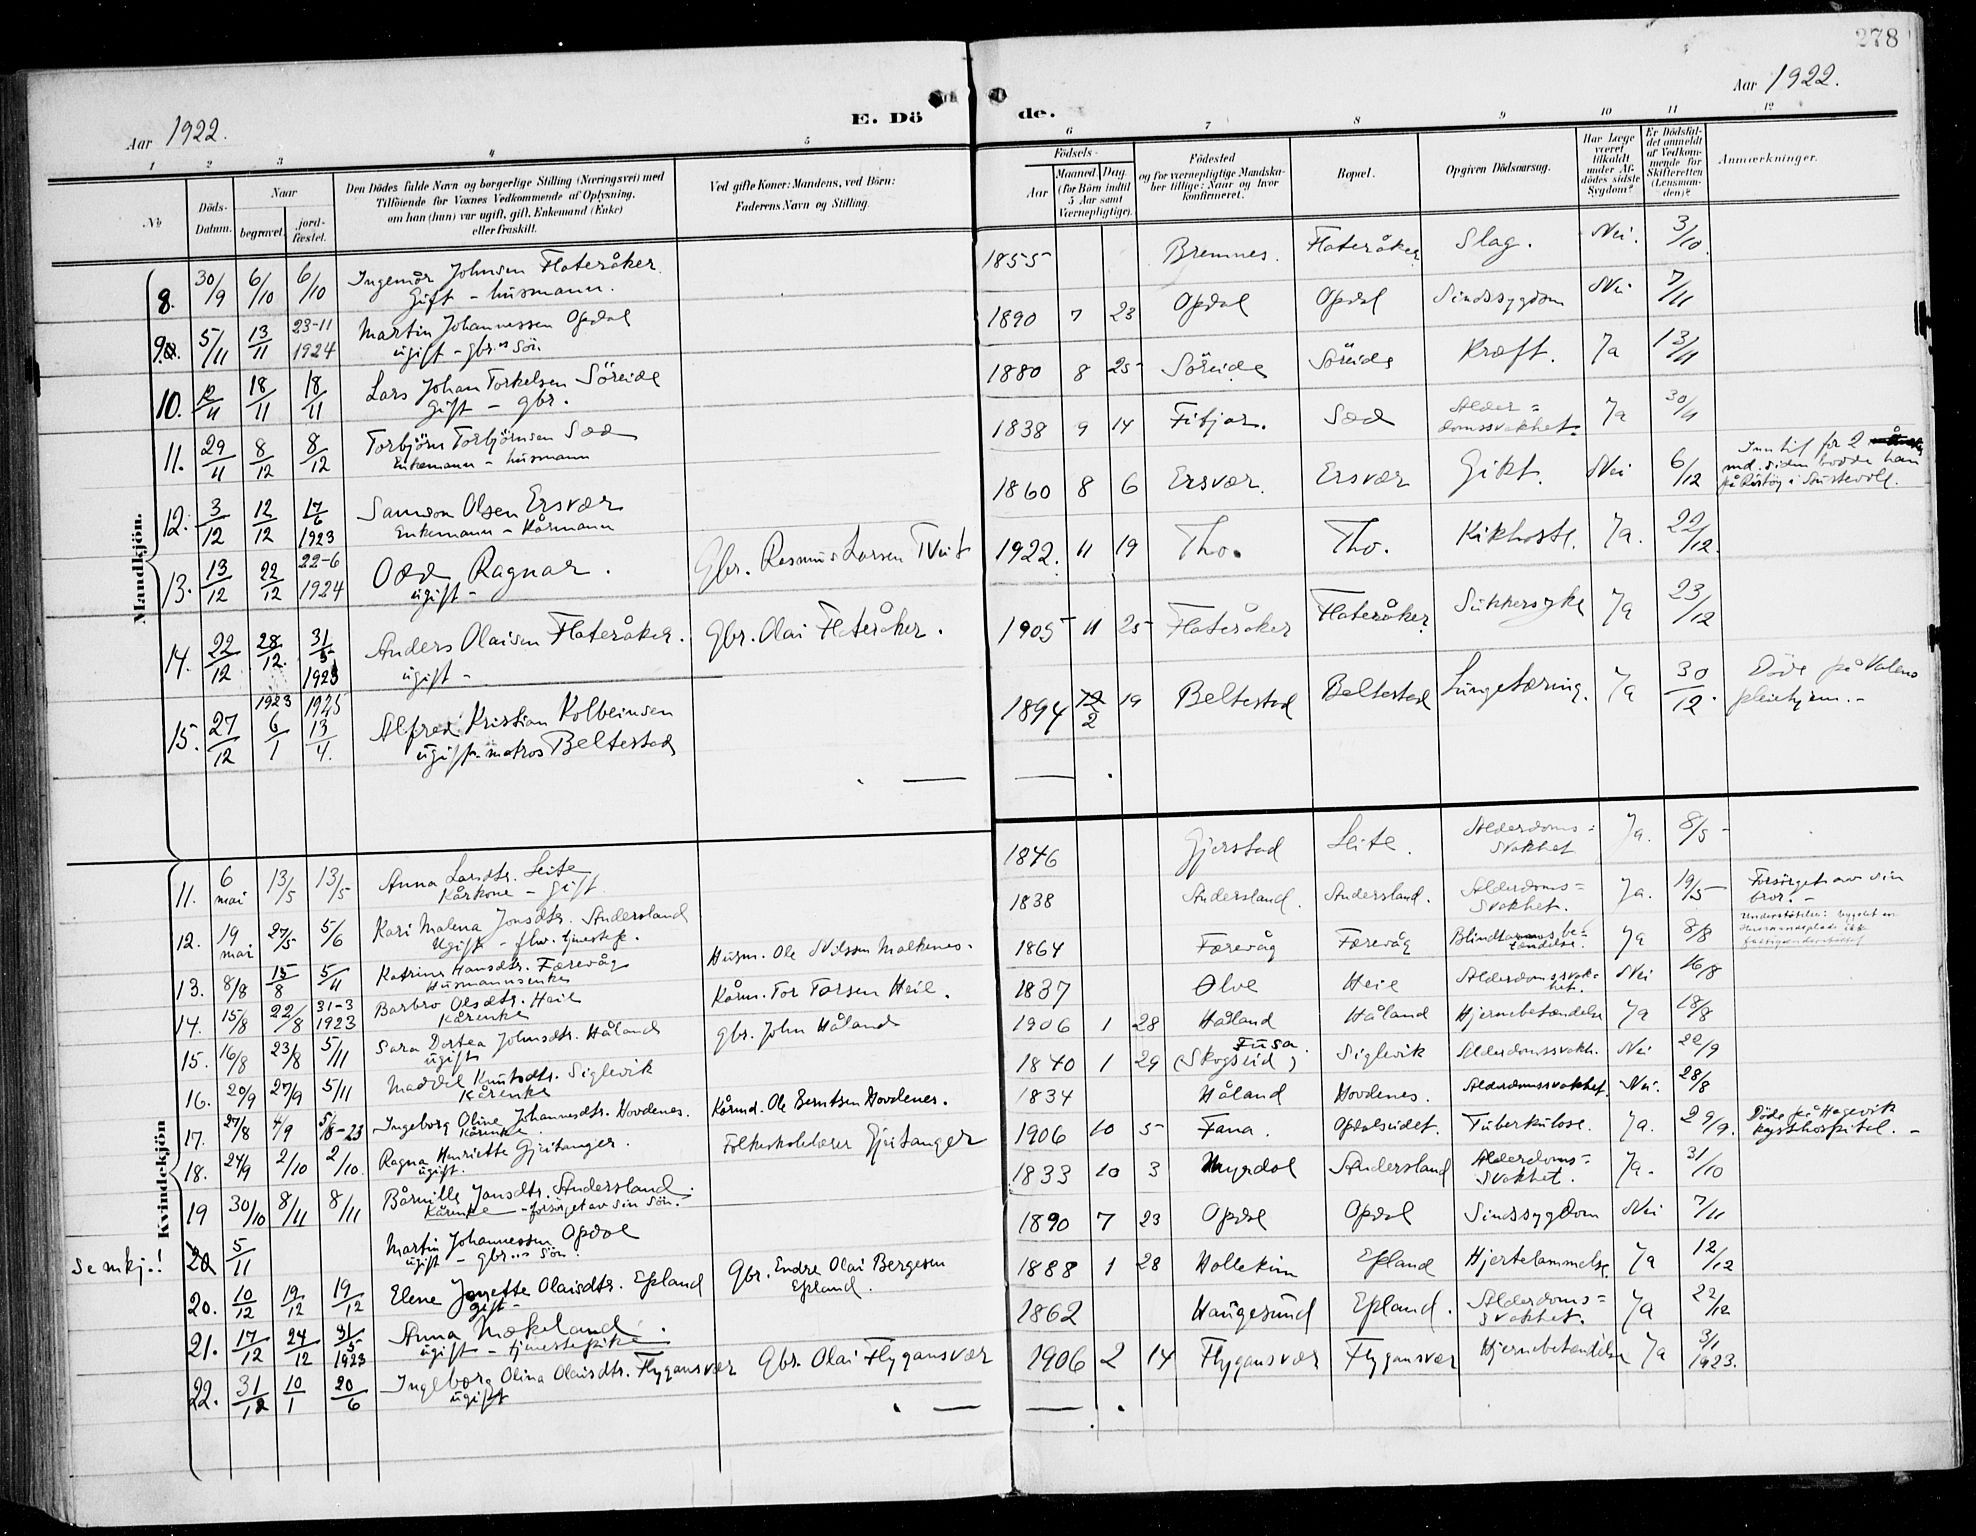 278
Aar 1922.
Aar 1922.
E. Dö de.
1 2 3 4 5 6 7 8 9 10 11 12
No
Döds-Datum.
Naar
begravet.
jordfæstet.
Den Dödes fulde Navn og borgerlige Stilling (Næringsvei) med
Tilföiende for Voxnes Vedkommende af Oplysning,
om han (hun) var ugift, gift, Enkemand (Enke)
eller fraskilt.
Ved gifte Koner: Mandens, ved Börn:
Faderens Navn og Stilling.
Födsels-
Aar
Maaned Dag
(for Börn indtil
5 Aar samt
Værnepligtige).
Födested
og for værnepligtige Mandskaber tillige: Naar og hvor
konfirmeret.
Bopæl.
Opgiven Dödsaarsag.
Har Læge
været
tilkaldt
under Afdödes sidste
Sygdom?
Er Dödsfaldet anmeldt
af Vedkommende for
Skifteretten
(Lensmanden)?
Anmærkninger.
Mandkjön.
8. 30/9 6/10 6/10 Ingemår Johnsen Flateråker. Gift - husmann. 1855 Bremnes. Flateråker Slag. Nei. 3/10.
9. 5/11 13/11 23-11 1924 Martin Johannessen Opdal ugift - gbr.s sön 1890 7 23 Opdal Opdal Sindssygdom Nei 7/11
10. 12/11 18/11 18/11 Lars Johan Torkelsen Söreide Gift - gbr. 1880 8 25 Söreide Söreide Kræft. Ja 13/11
11. 29/11 8/12 8/12 Torbjörn Torbjörnsen Sæd Enkemann - husmann 1838 9 14 Fitjar. Sæd Alderdomssvakhet. Ja 30/11
12. 3/12 12/12 17/6 1923 Samson Olsen Ersvær Enkemann - Kårmann 1860 8 6 Ersvær. Ersvær Gikt. Nei 6/12 Inntil for 2 md. siden bodde han på i Austevoll.
13. 13/12 22/12 22-6 1924 Odd Ragnar. ugift - Gbr. Rasmus Larsen Tveit 1922. 11 19 Tho. Tho. Kikhoste. Ja. 22/12.
14. 22/12 28/12. 31/5 1923 Anders Olaisen Flateråker. ugift - Gbr. Olai Flateråker. 1905 11 25 Flateråker Flateråker Sukkersyke Ja 23/12
15. 27/12 1923 6/1 1925 13/4. Alfred Kristian Kolbeinsen ugift - matros Beltestad 1894 12/2 19 Beltestad Beltestad Lungetæring. Ja 30/12. Döde på Valens pleiehjem. -
Kvindekjön
11. 6 mai 13/5 13/5 Anna Larsdtr. Leite Kårkone - gift. 1846 Gjerstad Leite. Alderdoms=svakhet Ja. 8/5 -
12. 19 mai 27/5 5/6 Kari Malena Jonsdtr. Andersland Ugift - fhv. tjenestep. 1838 Andersland. Andersland. Alderdoms=svakhet. Ja. 19/5 Forsörget av sin bror. -
13. 8/8 15/8 5/11 Katrina Hansdtr. Færevåg Husmannsenke Husm. Ole Nilssen Malkenes. 1864 Færevåg Færevåg Blindtarmsbetændelse. Ja 8/8
14. 15/8 22/8 31-3 1923 Barbro Olsdtr. Heie Kårenke Kårm. Tor Torsen Heie. 1837 Ølve Heie Alderdomssvakhet. Nei 16/8
15. 16/8 23/8 5/11 Sara Dortea Johnsdtr. Håland ugift gbr. John Håland 1906 1 28 Håland Håland Hjernebetændelse Ja 18/8
16. 20/9 27/9 5/11 Maddel Knutsdtr. Siglevik Kårenke 1840 1 29 Fusa. (Skogseid) Siglevik Alderdomssvakh. Nei 22/9
17. 27/8 4/9 5/8-23 Ingeborg Oline Johannesdtr. Hovdenes. Kårenke Kårmd. Ole Berntsen Hovdenes. 1834 Håland Hovdenes. Alderdomssvakhet. Nei. 28/8
18. 24/9 2/10 2/10. Ragna Henriette Gjeitanger. ugift. Folkeskolelærer Gjeitanger 1906 10 5 Fana. Opdalseidet. Tuberkulose. Ja. 29/9. Döde på Hagevik kysthospital. -
19 30/10 8/11 8/11 Bårnille Jonsdtr. Andersland. Kårenke - forsörget av sin sön. 1833 10 3 Myrdal Andersland Alderdoms=svakhet. Ja. 31/10
se mkj.! 20 5/11 Martin Johannessen Opdal ugift - gbr.s sön. 1890 7 23 Opdal Opdal Sindssygdom Nei 7/11
20. 10/12 19/12 19/12 Elene Jonette Olaisdtr. Epland gift - Gbr. Endre Olai Bergesen Epland. 1888 1 28 Hollekim Epland Hjertelammelse. Ja 12/12
21. 17/12 24/12 31/5 1923 Anna Mækeland. ugift - tjenestepike 1862 Haugesund Epland. Alderdoms=svakhet. Ja 22/12
22. 31/12 10/1 20/6 Ingeborg Olina Olaisdtr. Flygansvær ugift Gbr. Olai Flygansvær 1906 2 14 Flygansvær Flygansvær Hjernebetændelse Ja 3/1 1923.